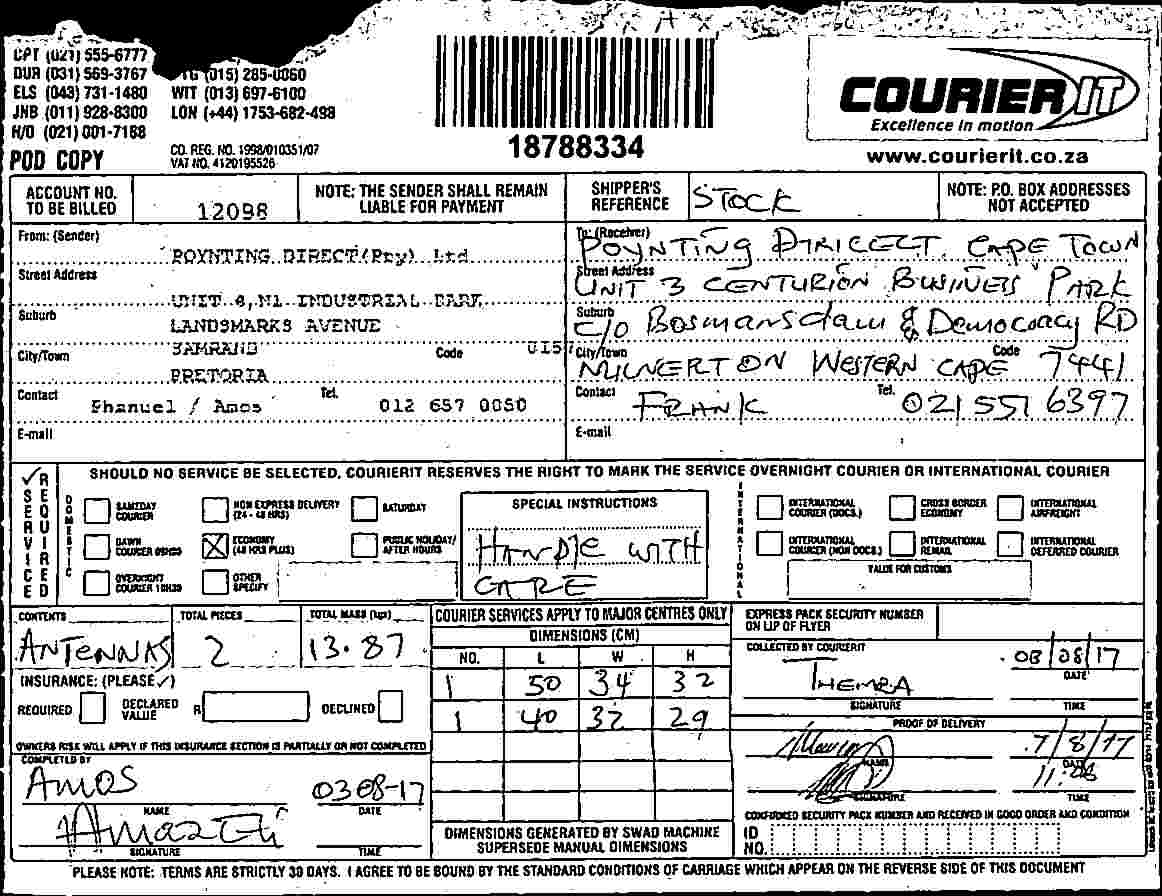 CPT (021) 555-6777
DUR (031) 569-3767 (015) 285-0060
ELS (043) 731-1480 WIT (013) 697-6100
JNB (011) 928-8300 LON (+44) 1753-682-498
H/O (021) 001-7188
POD COPY
CO. REG. NO. 1998/010351/07
VAT NO. 4120195526
18788334
COURIER IT
Excellence in motion
www.courierit.co.za
ACCOUNT NO. TO BE BILLED 12098
NOTE: THE SENDER SHALL REMAIN LIABLE FOR PAYMENT
SHIPPER'S REFERENCE STOCK
NOTE: P.O. BOX ADDRESSES NOT ACCEPTED
From: (Sender)
POYNTING DIRECT(Pty) Ltd
Street Address
UNIT 4,N1 INDUSTRIAL PARK
Suburb
LANDSMARKS AVENUE
City/Town SAMRAND Code 0157
PRETORIA
Contact Phanuel / Amos Tel. 012 657 0050
E-mail
To: (Receiver)
POYNTING DIRICECT. CAPE TOWN
Street Address
UNIT 3 CENTURION BUSINESS PARK
Suburb
C/O Bosmansdam & Democracy RD
City/Town Code
MILNERTON WESTERN CAPE 7441
Contact FRANK Tel. 021 551 6397
E-mail
SERVICE REQUIRED
SHOULD NO SERVICE BE SELECTED, COURIERIT RESERVES THE RIGHT TO MARK THE SERVICE OVERNIGHT COURIER OR INTERNATIONAL COURIER
DOMESTIC
SAMEDAY COURIER
NON EXPRESS DELIVERY (24 - 48 HRS)
SATURDAY
DAWN COURIER 09H25
ECONOMY (48 HRS PLUS)
PUBLIC HOLIDAY/ AFTER HOURS
OVERNIGHT COURIER 10H30
OTHER SPECIFY
SPECIAL INSTRUCTIONS
HANDLE WITH
CARE
INTERNATIONAL
INTERNATIONAL COURIER (DOCS.)
CROSS BORDER ECONOMY
INTERNATIONAL AIRFREIGHT
INTERNATIONAL COURIER (NON DOCS.)
INTERNATIONAL REMAIL
INTERNATIONAL DEFERRED COURIER
VALUE FOR CUSTOMS
CONTENTS ANTENNAS
TOTAL PIECES 2
TOTAL MASS (kgs) 13.87
INSURANCE: (PLEASE ✓)
REQUIRED DECLARED VALUE R DECLINED
OWNERS RISK WILL APPLY IF THIS INSURANCE SECTION IS PARTIALLY OR NOT COMPLETED
COMPLETED BY
AMOS 03-08-17
NAME DATE
SIGNATURE TIME
COURIER SERVICES APPLY TO MAJOR CENTRES ONLY
DIMENSIONS (CM)
NO. L W H
1 50 34 32
1 40 32 29
DIMENSIONS GENERATED BY SWAD MACHINE SUPERSEDE MANUAL DIMENSIONS
EXPRESS PACK SECURITY NUMBER ON LIP OF FLYER
COLLECTED BY COURIERIT
THEMBA 03/08/17
DATE
SIGNATURE TIME
PROOF OF DELIVERY
7/8/17
NAME DATE
SIGNATURE TIME
CONFIRMED SECURITY PACK NUMBER AND RECEIVED IN GOOD ORDER AND CONDITION
ID NO.
PLEASE NOTE: TERMS ARE STRICTLY 30 DAYS. I AGREE TO BE BOUND BY THE STANDARD CONDITIONS OF CARRIAGE WHICH APPEAR ON THE REVERSE SIDE OF THIS DOCUMENT